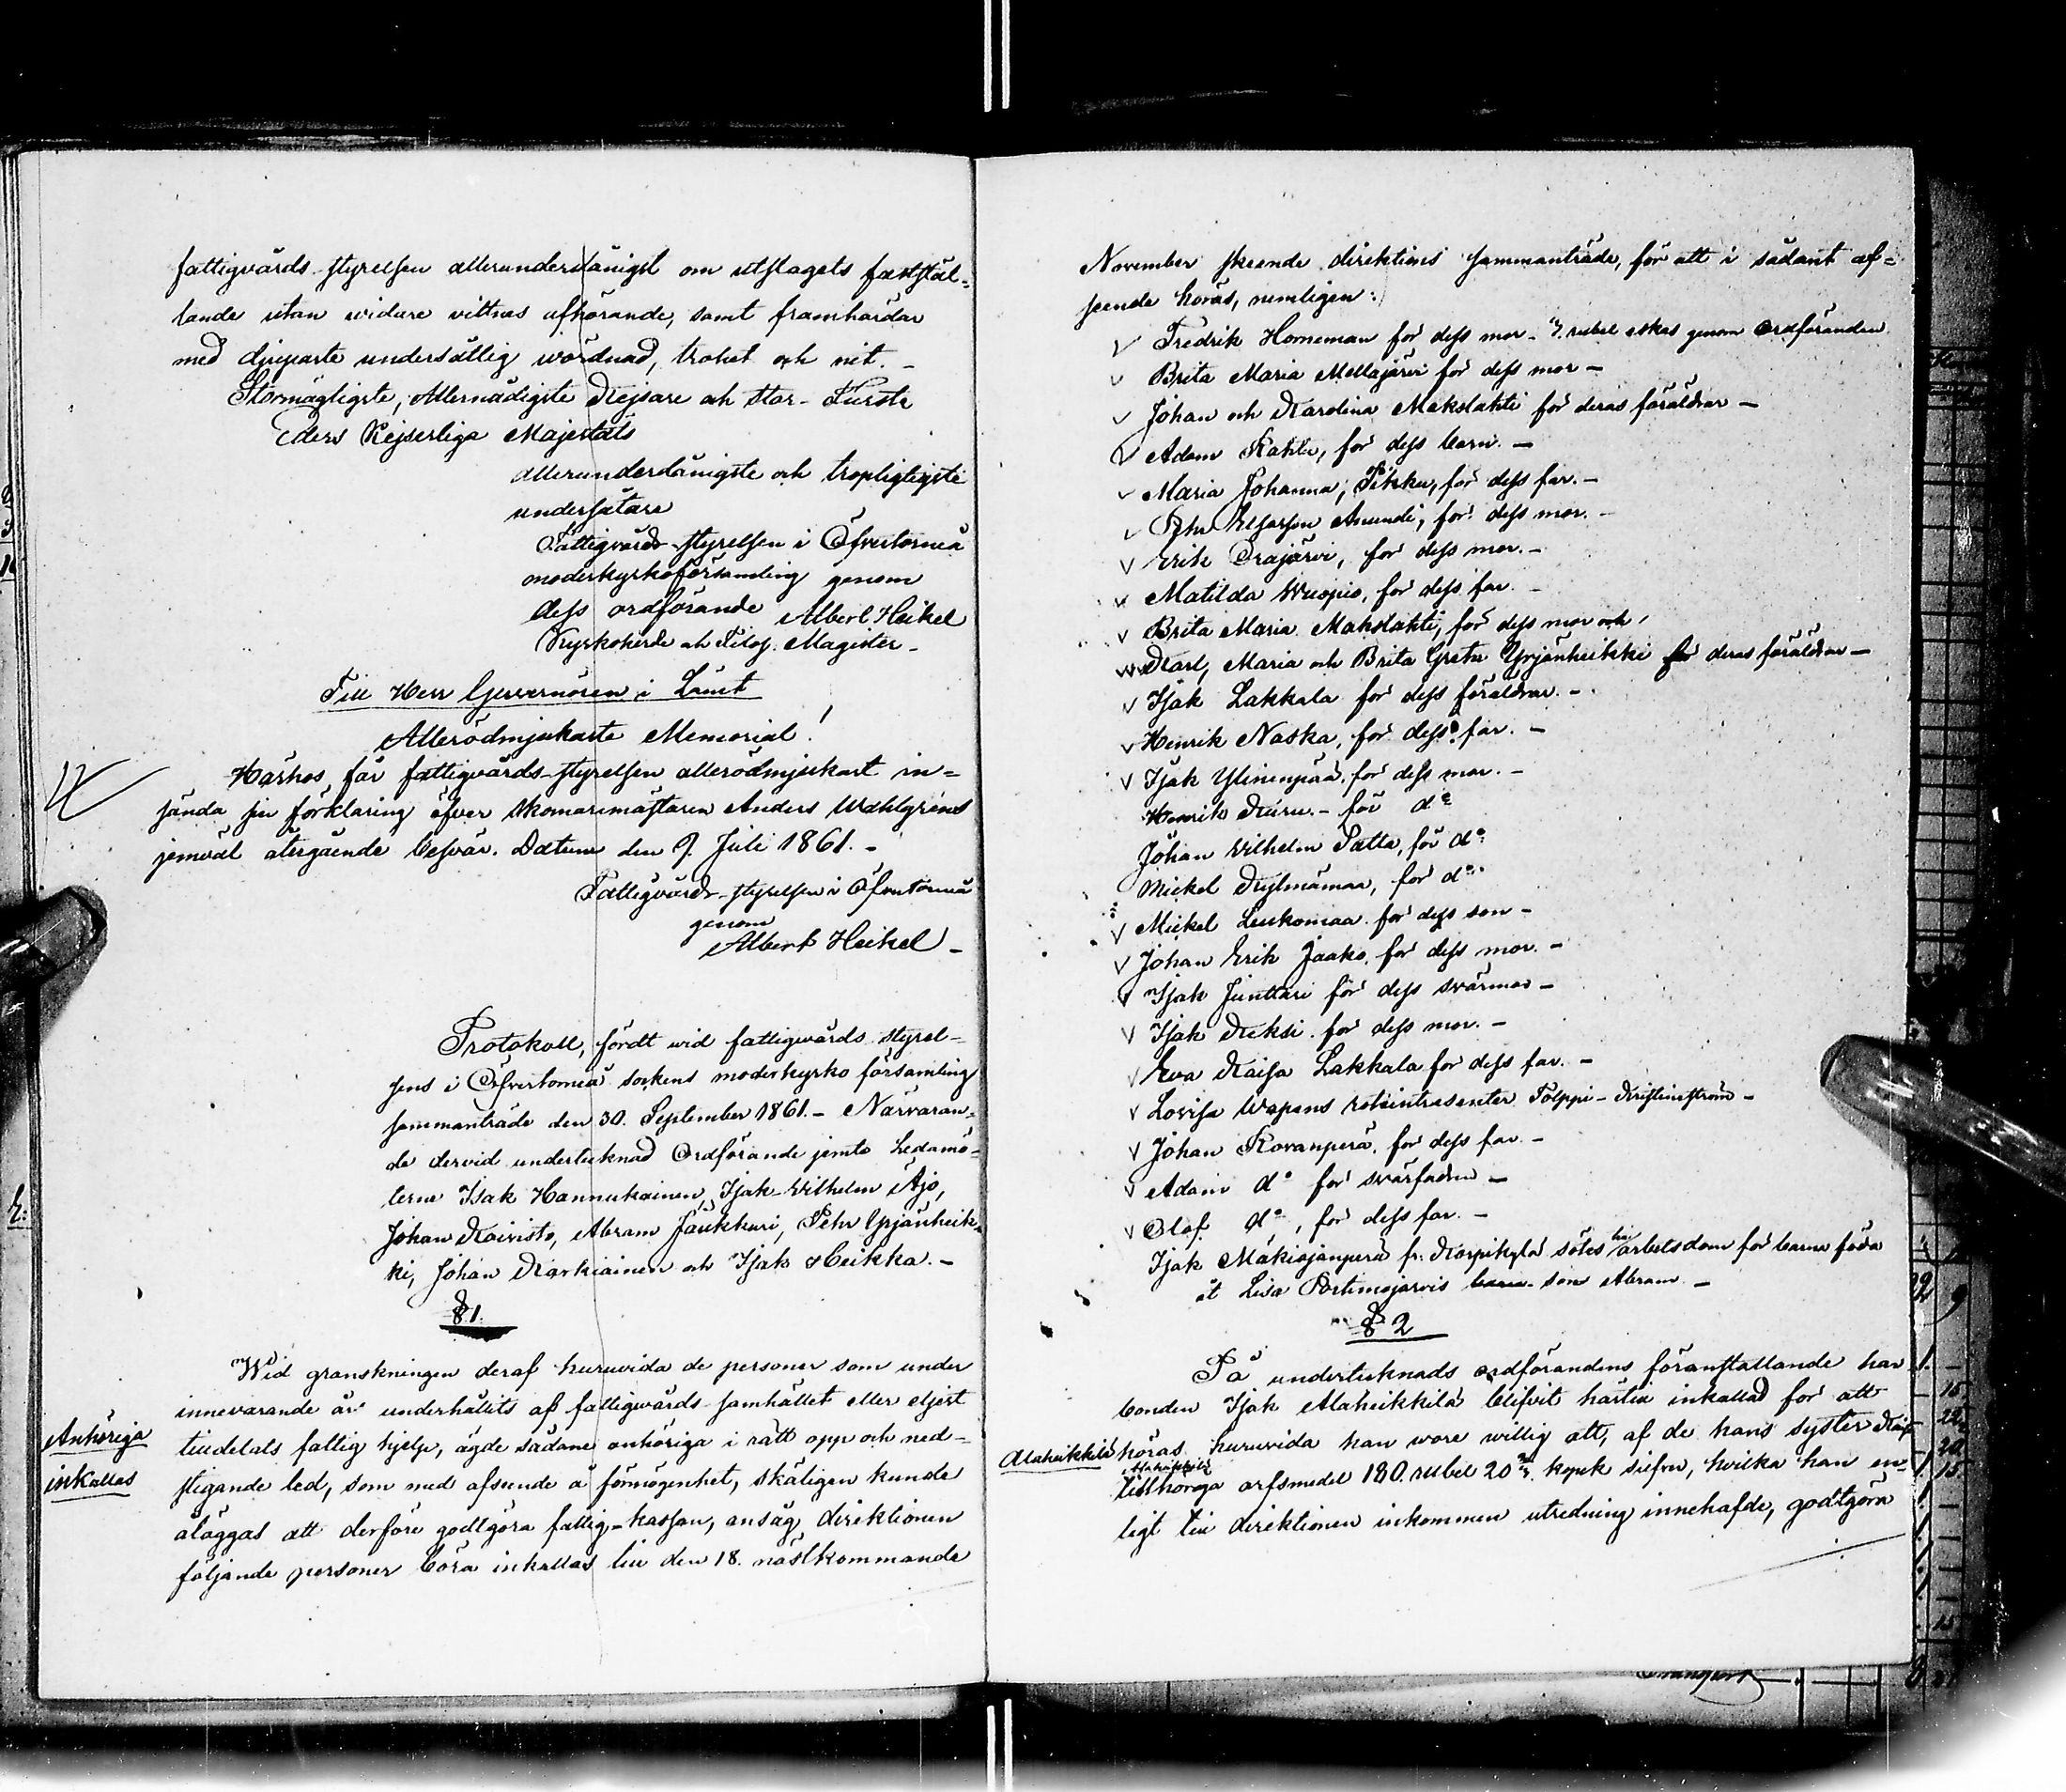 fattigvårds-styrelsen allerunderdånigst om utslagets fastställ-
lande utan widare vittnes afhörande, samt framhärdar
med djupaste undersåtlig wördnad, trohet och nit. -
Stormägtigste, Allernådigste Kejsare och Stor-Furste
Eders Kejserliga Majestäts
allerunderdånigste och tropligtigste
undersåtare
Fattigvårds-styrelsen i Öfvertorneå
moderkyrkoförsamling genom
dess ordförande Albert Heikel
Kyrkoherde och Filos. Magister -
Till Herr Guvernören i Länet
Allerödmjukaste Memorial!
Härhos får fattigvårds-styrelsen allerödmjukast in-
sända sin förklaring öfver skomarimästaren Anders Wahlgréns
jemväl återgående besvär. Datum den 9. Juli 1861. -
Fattigvårds-styrelsen i Öfvertorneå
genom
Albert Heikel -
Protokoll, fördt wid fattigwårds styrel-
sens i Öfvertorneå sockens moderkyrko församling
sammanträde den 30. September 1861. - Närvaran-
de dervid undertecknad Ordförande jemte Ledamö-
terne Isak Hannukainen, Isak Wilhelm Äjö,
Johan Koivisto, Abram Jaukkuri, Pehr Yrjänheik-
ki, Johan Karkiainen och Isak Heikka. -
§ 1.
Anhöriga
inkallas
Wid granskningen deraf huruvida de personer som under
innevarande år underhållits af fattigwårds-samhället eller eljest
tilldelats fattig hjelp, ägde sådane anhöriga i rätt opp och ned-
stigande led, som med afseende å förmögenhet, skäligen kunde
åläggas att derföre godtgöra fattig-kassan, ansåg direktionen
följande personer böra inkallas till den 18. nästkommande
November skeende direktions sammanträde, för att i sådant af-
seende höras, nemligen:
V Fredrik Horneman för dess mor - 7. rubel eskas genom Ordföranden
V Brita Maria Mellajärvi för dess mor -
V Johan och Karolina Makslahti för deras föräldrar -
V Adam Kahlu, för dess barn. -
V Maria Johanna Pikku, för dess far. -
V Pehr Elfasson Anundi, för dess mor. -
V Erik Orajärvi, för dess mor. -
V Matilda Wuopio, för dess far. -
V Brita Maria Makslahti, för dess mor och,
VVV Karl, Maria och Brita Greta Yrjänheikki för deras föräldrar -
V Isak Lakkala för dess föräldrar. -
V Henrik Naska, för dess far. -
V Isak Ylinenpää, för dess mor. -
Henrik Kuru. - för d:o
Johan Wilhelm Patta, för d:o
Mickel Kylmämaa, för d:o
V Mickel Leukomaa för dess son -
V Johan Erik Jaako, för dess mor. -
V Isak Junttari för dess svärmor -
V Isak Keksi för dess mor. -
V Eva Kaisa Lakkala för dess far. -
V Lovisa Wapens roteintresenter Tolppi - Kristineström -
V Johan Kovanperä, för dess far. -
V Adam d:o för svärfadren -
V Olof d:o, för dess far. -
Isak Mäkisjänperä fr. Korpikylä sökes arbetsdom för barna föda
åt Lisa Portimojärvis son Abram. -
§ 2
Alaheikkilä
På undertecknads ordförandens föranstaltande har
bonden Isak Alaheikkilä blifvit härtill inkallad för att
höras huruvida han wore willig att, af de hans syster Kaisa
Alaheikkilä
tillhöriga arfsmedel 180. rubel 20 kopek silfver, hvilka han en-
ligt till direktionen inkommen utredning innehafde, godtgöra
Transport